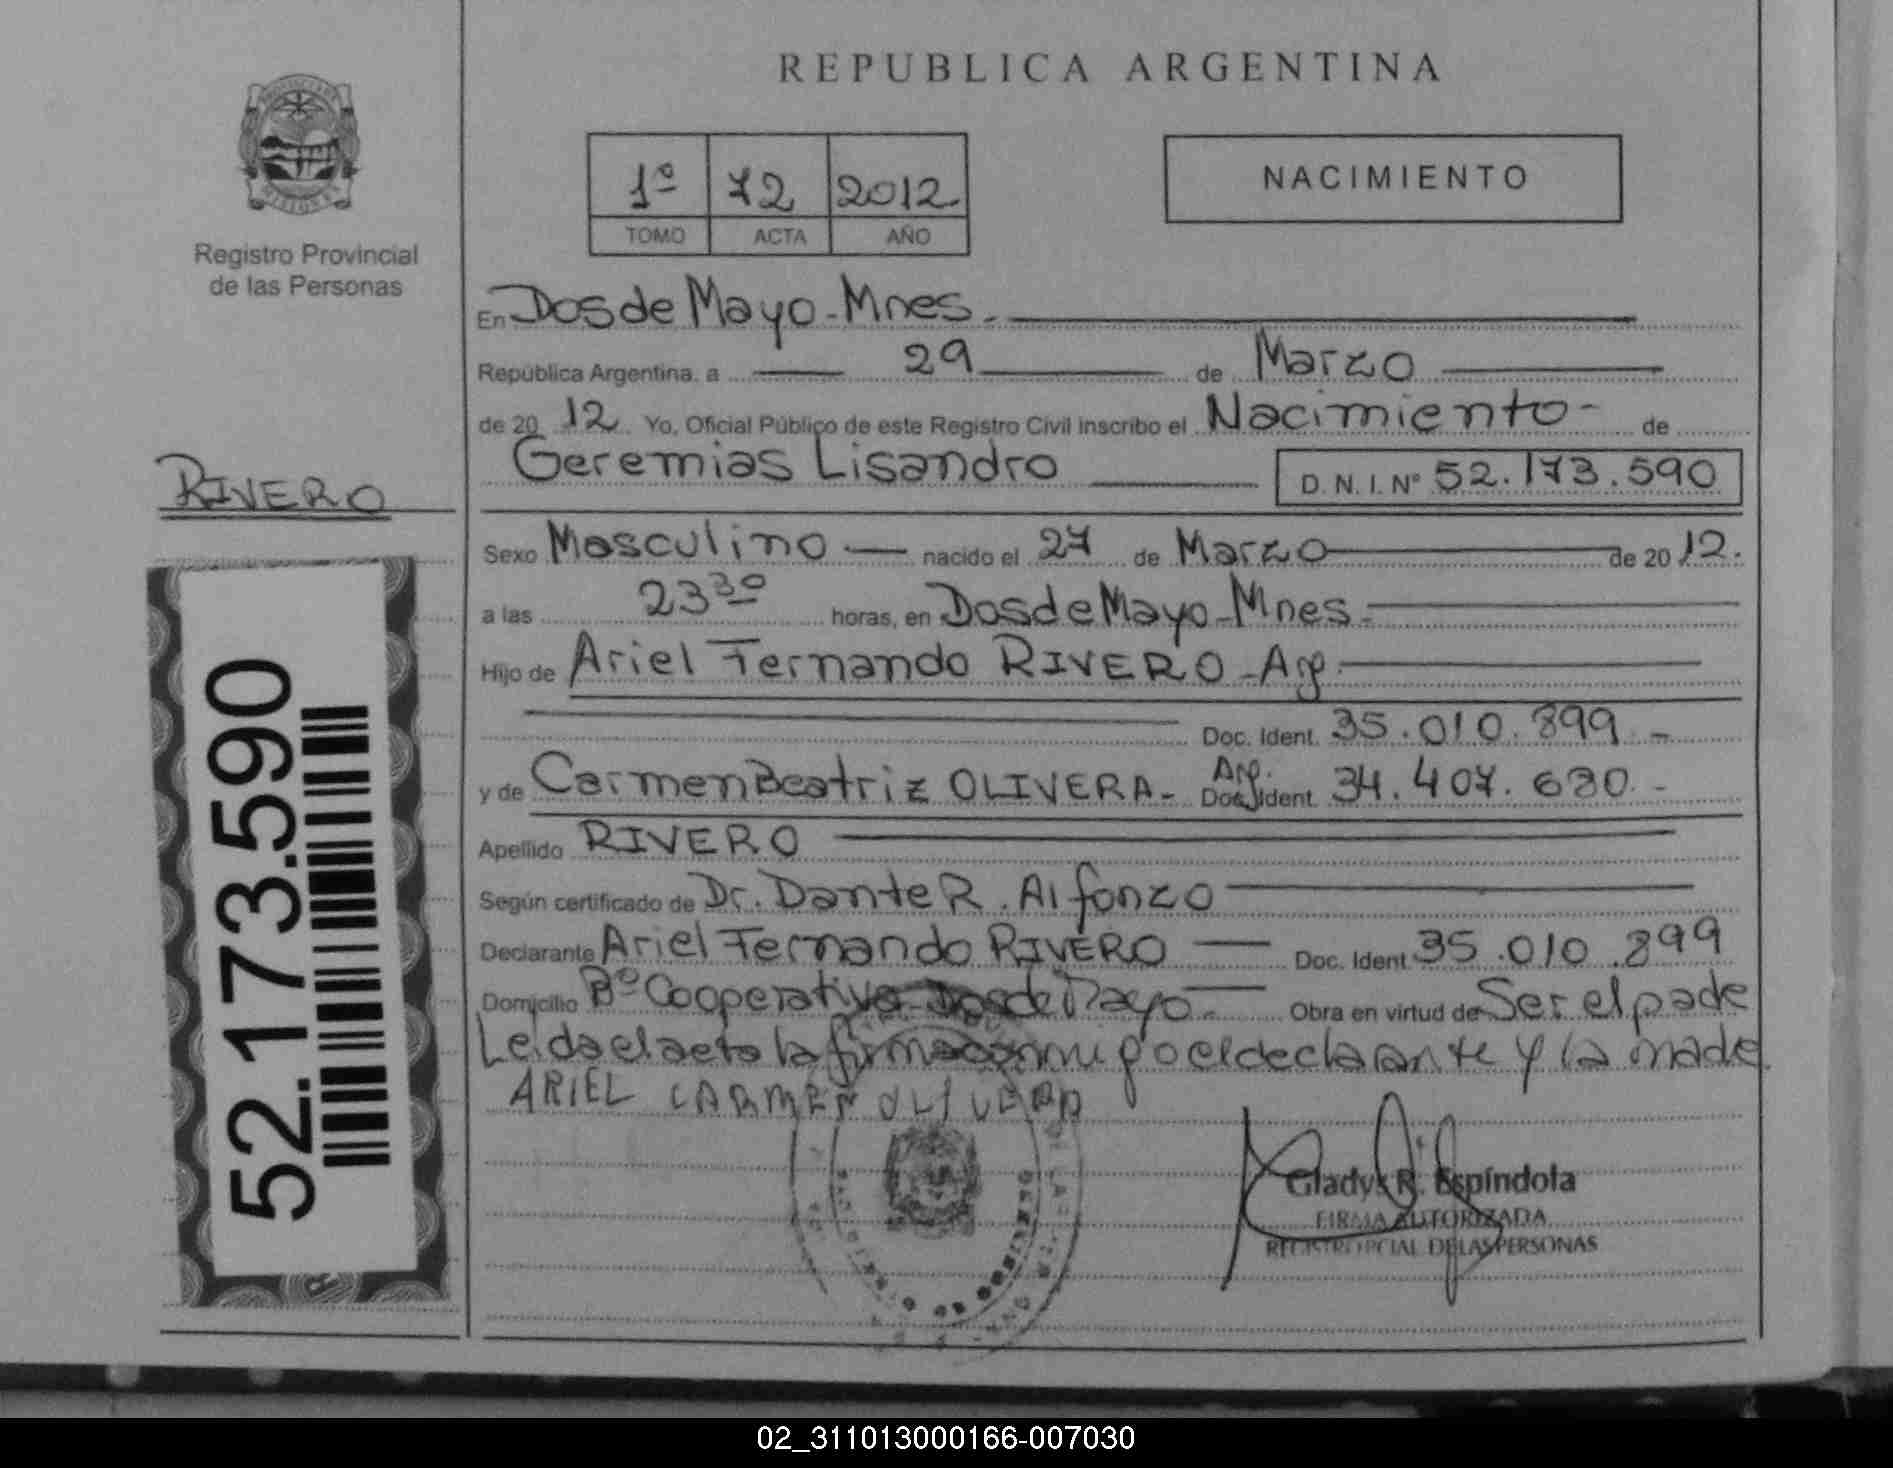 REPUBLICA ARGENTINA
1º 72 2012
TOMO ACTA AÑO
NACIMIENTO
Registro Provincial
de las Personas
RIVERO
52.173.590
En Dos de Mayo - Mnes.
República Argentina, a 29 de Marzo
de 20 12 Yo, Oficial Público de este Registro Civil inscribo el Nacimiento - de
Geremias Lisandro D.N.I.Nº 52.173.590
Sexo Masculino nacido el 27 de Marzo de 20 12.
a las 23 30 horas, en Dos de Mayo - Mnes.
Hijo de Ariel Fernando RIVERO - Arg.
Doc. Ident. 35.010.899 -
y de Carmen Beatriz OLIVERA - Arg. Doc. Ident. 34.407.680 -
Apellido RIVERO
Según certificado de Dr. Dante R. Alfonzo
Declarante Ariel Fernando RIVERO Doc. Ident. 35.010.899
Domicilio Bº Cooperativa - Dos de Mayo - Obra en virtud de Ser el padre
Leida el acta la firma conmigo el declarante y la madre
ARIEL CARMEN OLIVERA
Gladys R. Espíndola
FIRMA AUTORIZADA
REGISTRO PCIAL DE LAS PERSONAS
02_311013000166-007030